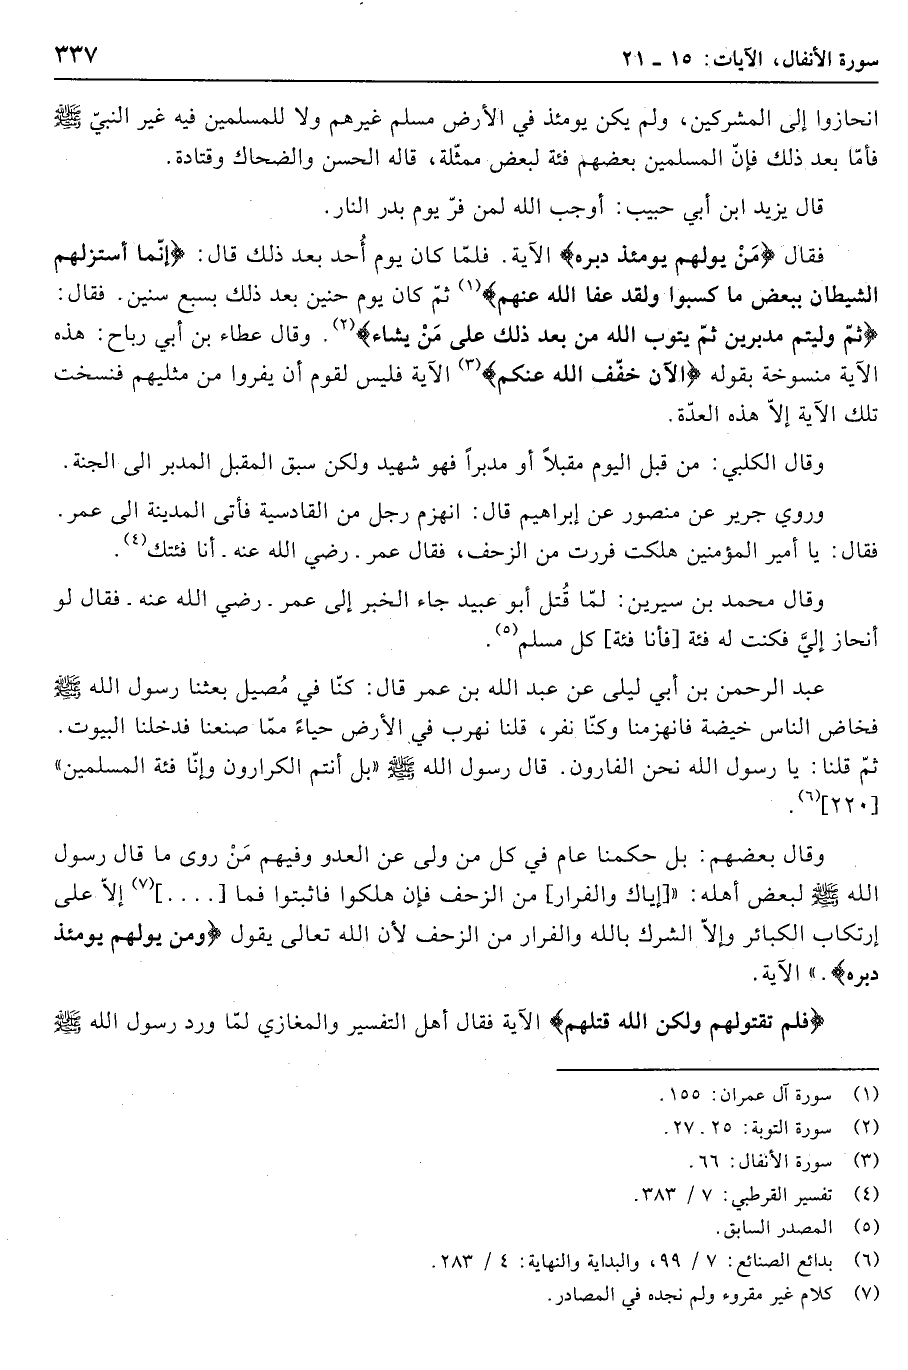 سورة الأنفال، الآيات: ١٥ ـ ٢١ ٣٣٧
انحازوا إلى المشركين، ولم يكن يومئذ في الأرض مسلم غيرهم ولا للمسلمين فيه غير النبيّ ﷺ
فأمّا بعد ذلك فإنّ المسلمين بعضهم فئة لبعض ممثّلة، قاله الحسن والضحاك وقتادة.
قال يزيد ابن أبي حبيب: أوجب الله لمن فرّ يوم بدر النار.
فقال ﴿مَنْ يولهم يومئذ دبره﴾ الآية. فلمّا كان يوم أُحد بعد ذلك قال: ﴿إنّما أستزلهم
الشيطان ببعض ما كسبوا ولقد عفا الله عنهم﴾(١) ثمّ كان يوم حنين بعد ذلك بسبع سنين. فقال:
﴿ثمّ وليتم مدبرين ثمّ يتوب الله من بعد ذلك على مَنْ يشاء﴾(٢). وقال عطاء بن أبي رباح: هذه
الآية منسوخة بقوله ﴿الآن خفّف الله عنكم﴾(٣) الآية فليس لقوم أن يفروا من مثليهم فنسخت
تلك الآية إلاّ هذه العدّة.
وقال الكلبي: من قبل اليوم مقبلاً أو مدبراً فهو شهيد ولكن سبق المقبل المدبر الى الجنة.
وروي جرير عن منصور عن إبراهيم قال: انهزم رجل من القادسية فأتى المدينة الى عمر.
فقال: يا أمير المؤمنين هلكت فررت من الزحف، فقال عمر ـ رضي الله عنه ـ أنا فئتك(٤).
وقال محمد بن سيرين: لمّا قُتل أبو عبيد جاء الخبر إلى عمر ـ رضي الله عنه ـ فقال لو
أنحاز إليَّ فكنت له فئة [فأنا فئة] كل مسلم(٥).
عبد الرحمن بن أبي ليلى عن عبد الله بن عمر قال: كنّا في مُصيل بعثنا رسول الله ﷺ
فخاض الناس خيضة فانهزمنا وكنّا نفر، قلنا نهرب في الأرض حياءً ممّا صنعنا فدخلنا البيوت.
ثمّ قلنا: يا رسول الله نحن الفارون. قال رسول الله ﷺ «بل أنتم الكرارون وإنّا فئة المسلمين»
[٢٢٠](٦).
وقال بعضهم: بل حكمنا عام في كل من ولى عن العدو وفيهم مَنْ روى ما قال رسول
الله ﷺ لبعض أهله: «[إياك والفرار] من الزحف فإن هلكوا فاثبتوا فما [....](٧) إلاّ على
إرتكاب الكبائر وإلاّ الشرك بالله والفرار من الزحف لأن الله تعالى يقول ﴿ومن يولهم يومئذ
دبره﴾.» الآية.
﴿فلم تقتولهم ولكن الله قتلهم﴾ الآية فقال أهل التفسير والمغازي لمّا ورد رسول الله ﷺ
(١) سورة آل عمران: ١٥٥.
(٢) سورة التوبة: ٢٥ ـ ٢٧.
(٣) سورة الأنفال: ٦٦.
(٤) تفسير القرطبي: ٧ / ٣٨٣.
(٥) المصدر السابق.
(٦) بدائع الصنائع: ٧ / ٩٩، والبداية والنهاية: ٤ / ٢٨٣.
(٧) كلام غير مقروء ولم نجده في المصادر.